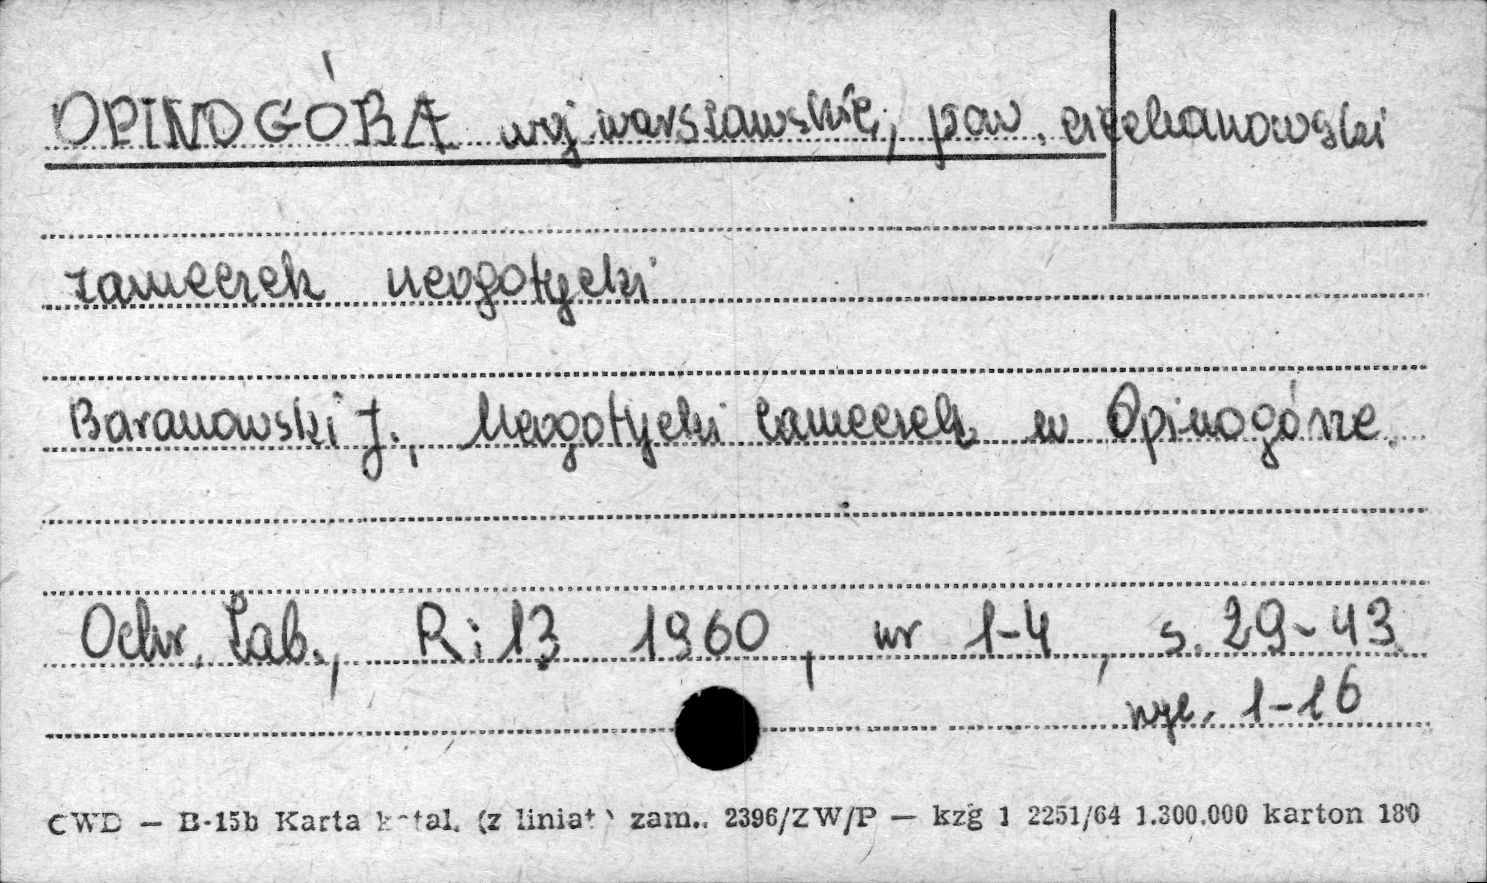 OPINOGÓRA woj. warszawskie, pow. ciechanowski
zameczek neogotycki
Baranowski J., Neogotycki zameczek w Opinogórze.
Ochr. Zab., R: 13 1960, nr 1-4, s. 29-43
ryc. 1-16
CWD — B-15b Karta katal. (z liniat) zam.. 2396/ZW/P — kzg 1 2251/64 1.300.000 karton 180